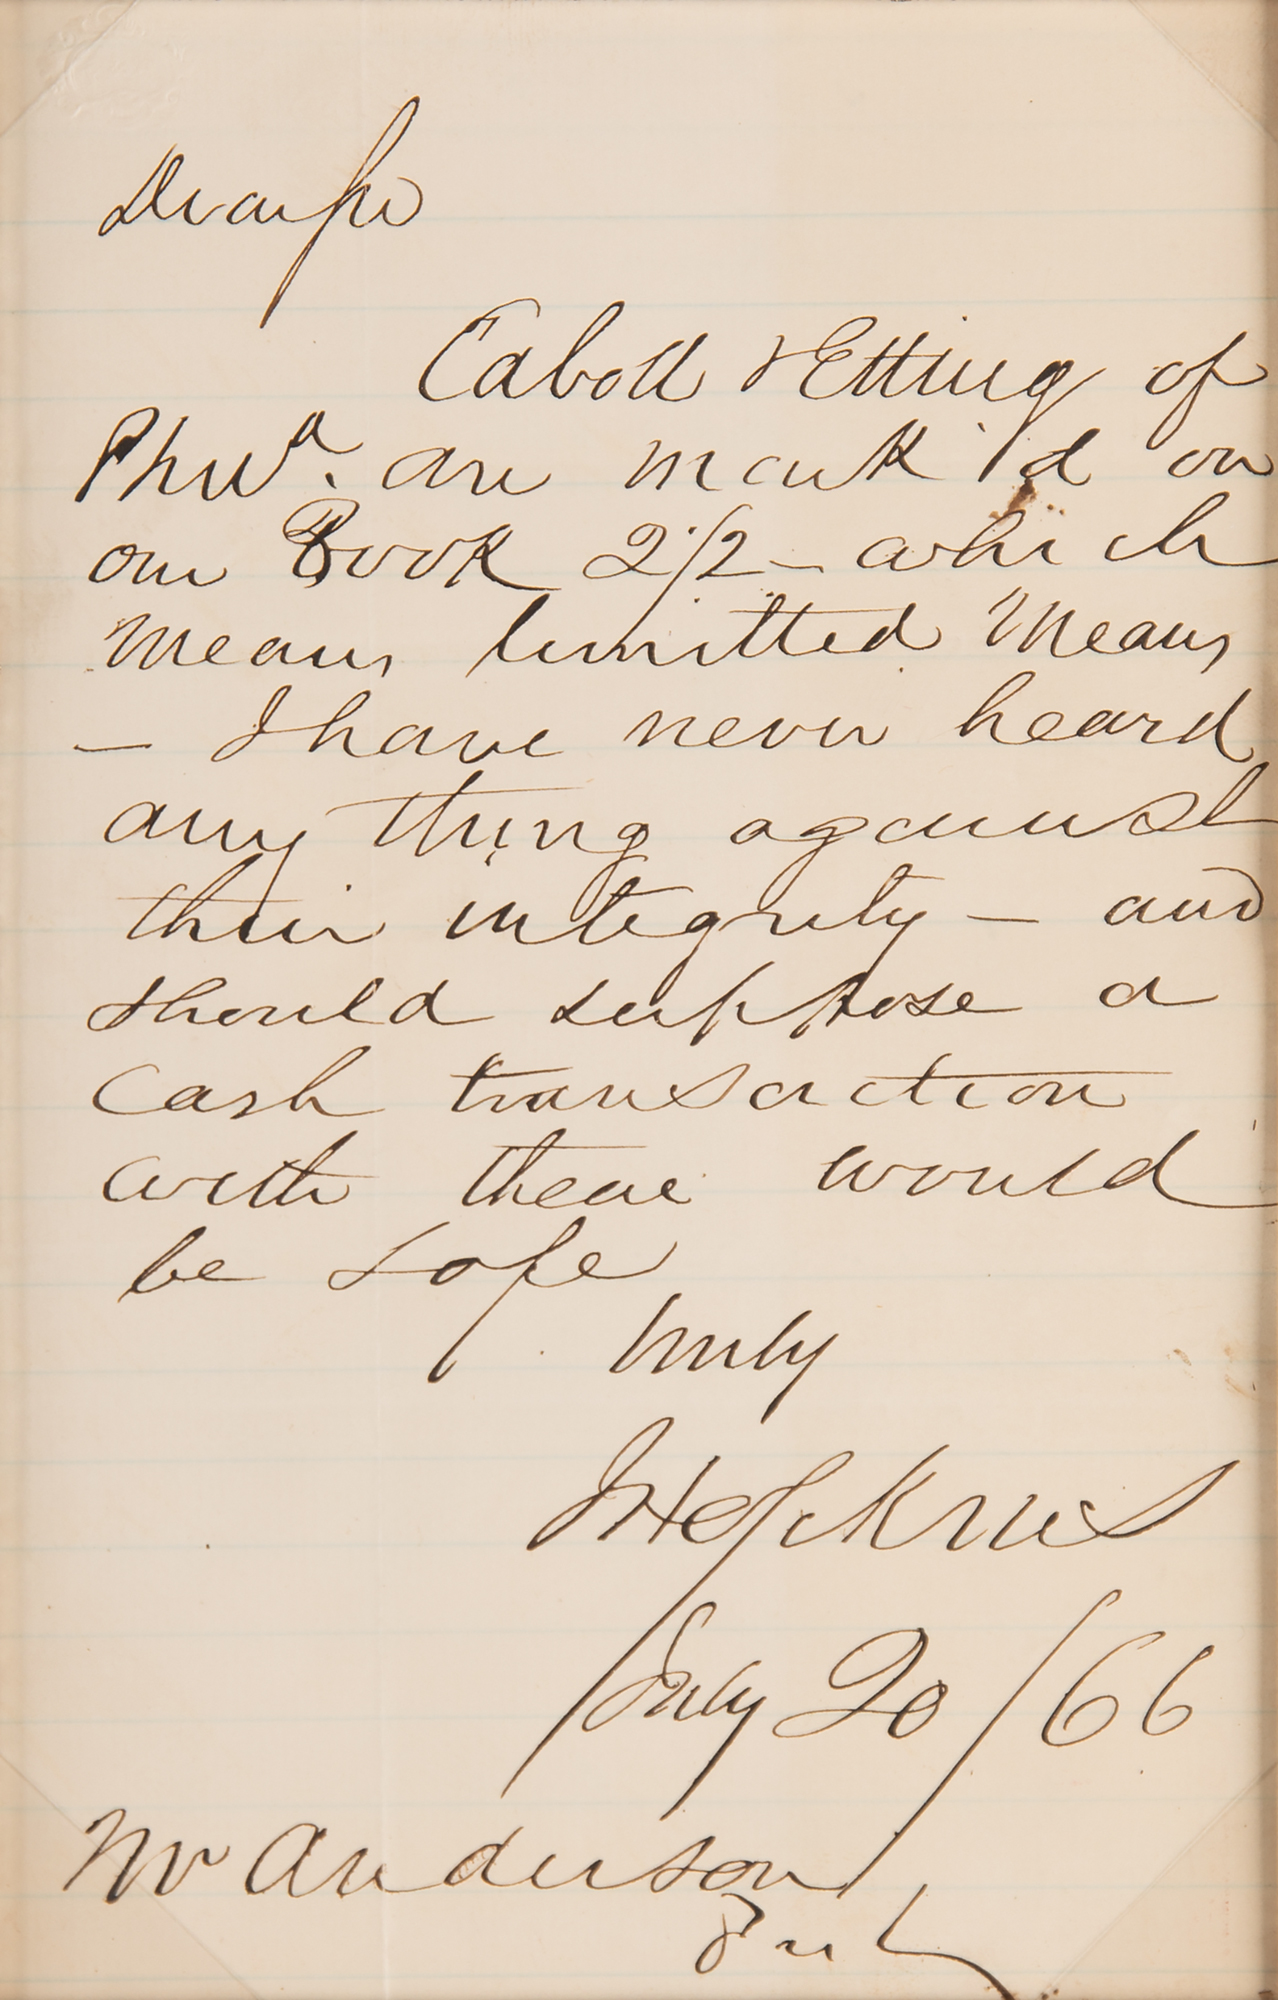 Dear Sir
Cabott & Etting of
Phila. are mark'd on
our Book 2½ — which
means limitted Means
— I have never heard
any thing against
their integrity — and
should suppose a
Cash transaction
with them would
be safe
truly
J Hopkins
July 20/66
Mr Anderson